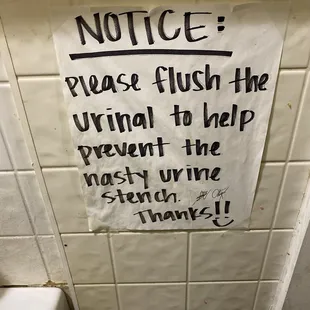 NOTICE:
please flush the
urinal to help
prevent the
nasty urine
stench.
Thanks!!